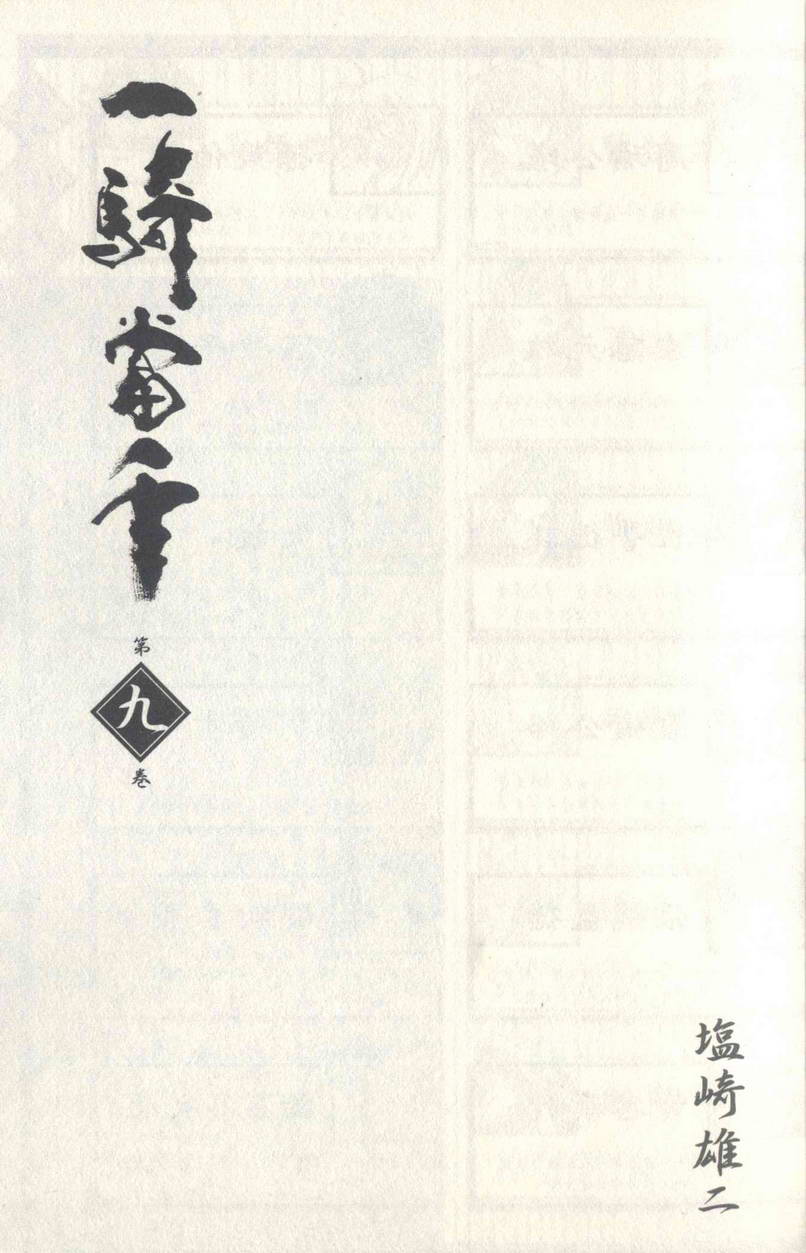 一騎當千
第
九
巻
塩崎雄二